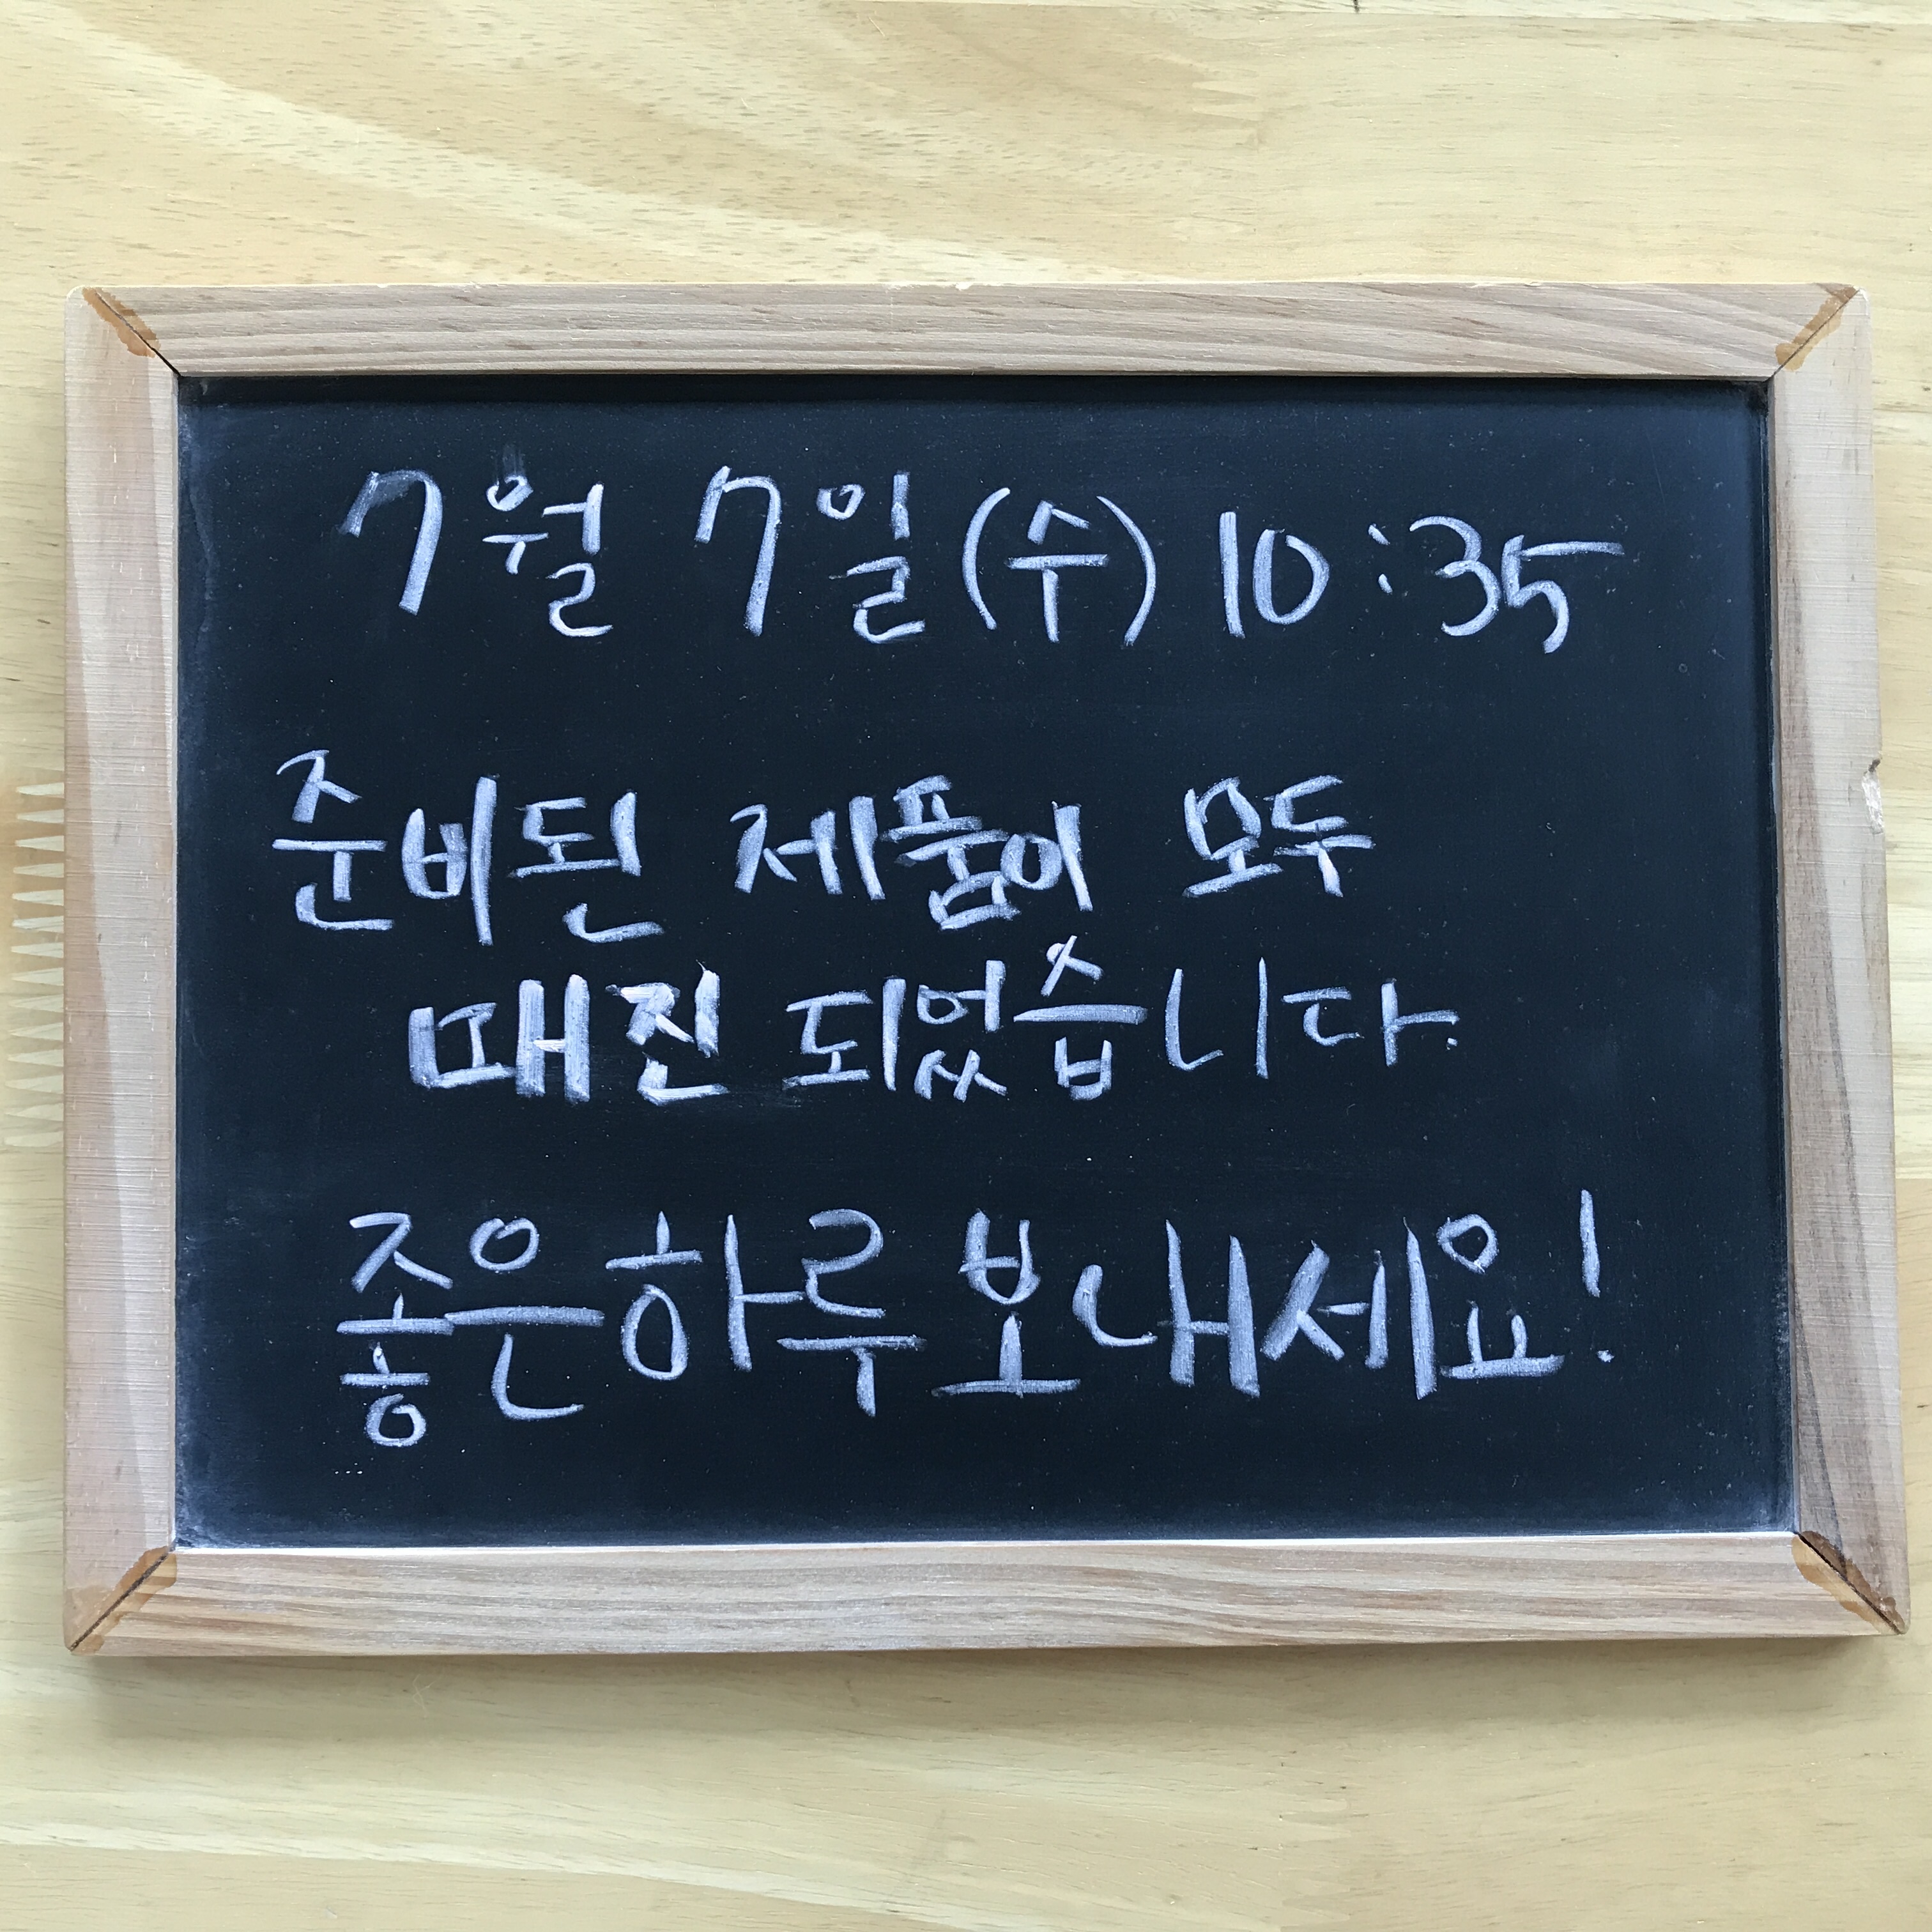 7월 7일(수) 10:35
준비된 제품이 모두
매진 되었습니다.
좋은하루 보내세요!